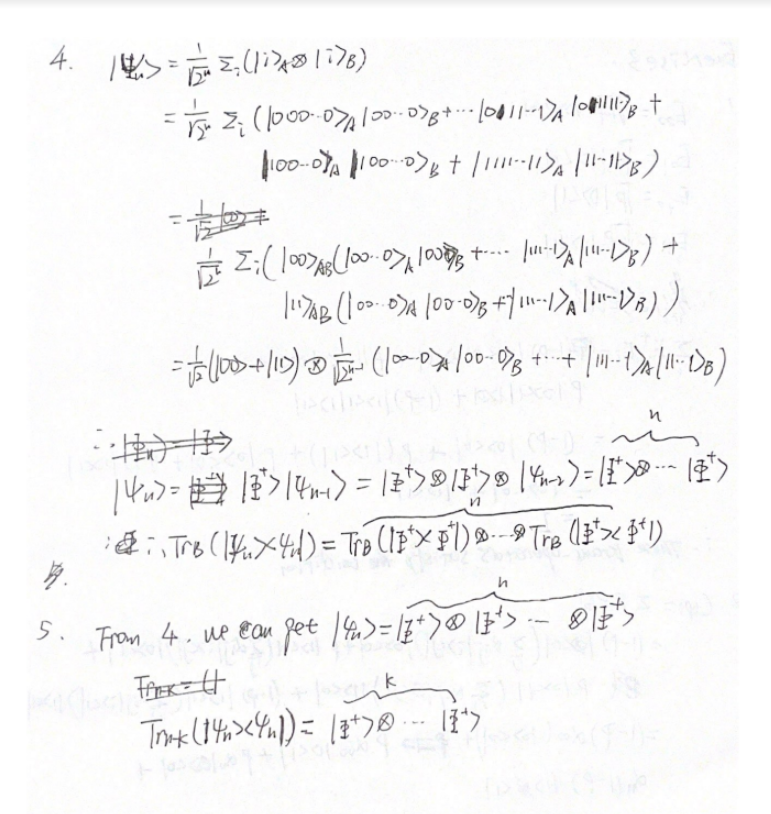 4. |Ψₙ> = 1/√2ⁿ Σᵢ(|i>_A ⊗ |i>_B)
= 1/√2ⁿ Σᵢ (|000··0>_A |00··0>_B + ··· |0111··1>_A |01111>_B +
|100··0>_A |100··0>_B + |1111··11>_A |11··11>_B)
= 1/√2
1/√2ⁿ Σᵢ( |00>_AB (|00··0>_A |00··0>_B + ···· |111··1>_A |111··1>_B) +
|11>_AB (|00··0>_A |00··0>_B + ··|111··1>_A |111··1>_B) )
= 1/√2 (|00> + |11>) ⊗ 1/√2ⁿ⁻¹ (|00··0>_A |00··0>_B + ··· + |111··1>_A |11··1>_B)
n
|ψₙ> = |Φ⁺>|ψₙ₋₁> = |Φ⁺> ⊗ |Φ⁺> ⊗ |ψₙ₋₂> = |Φ⁺> ⊗ ··· |Φ⁺>
n
∴ Tr_B (|ψₙ><ψₙ|) = Tr_B (|Φ⁺><Φ⁺|) ⊗ ··· ⊗ Tr_B (|Φ⁺><Φ⁺|)
n
5. From 4. we can get |ψₙ> = |Φ⁺> ⊗ |Φ⁺> ··· ⊗ |Φ⁺>
k
Trₙ₋ₖ (|ψₙ><ψₙ|) = |Φ⁺> ⊗ ··· |Φ⁺>